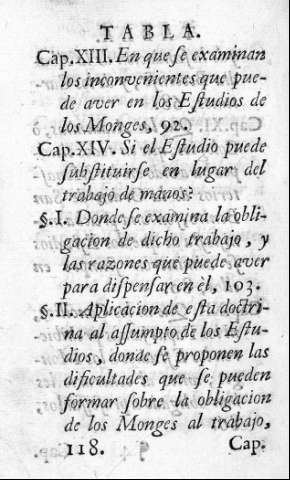 TABLA.
Cap.XIII. En que se examinan
los inconvenientes que pue-
de aver en los Estudios de
los Monges, 92.
Cap.XIV. Si el Estudio puede
substituirse en lugar del
trabajo de manos?
§.I. Donde se examina la obli-
gacion de dicho trabajo, y
las razones que puede aver
para dispensar en èl, 103.
§.II. Aplicacion de esta doctri-
na al assumpto de los Estu-
dios, donde se proponen las
dificultades que se pueden
formar sobre la obligacion
de los Monges al trabajo,
118. Cap.